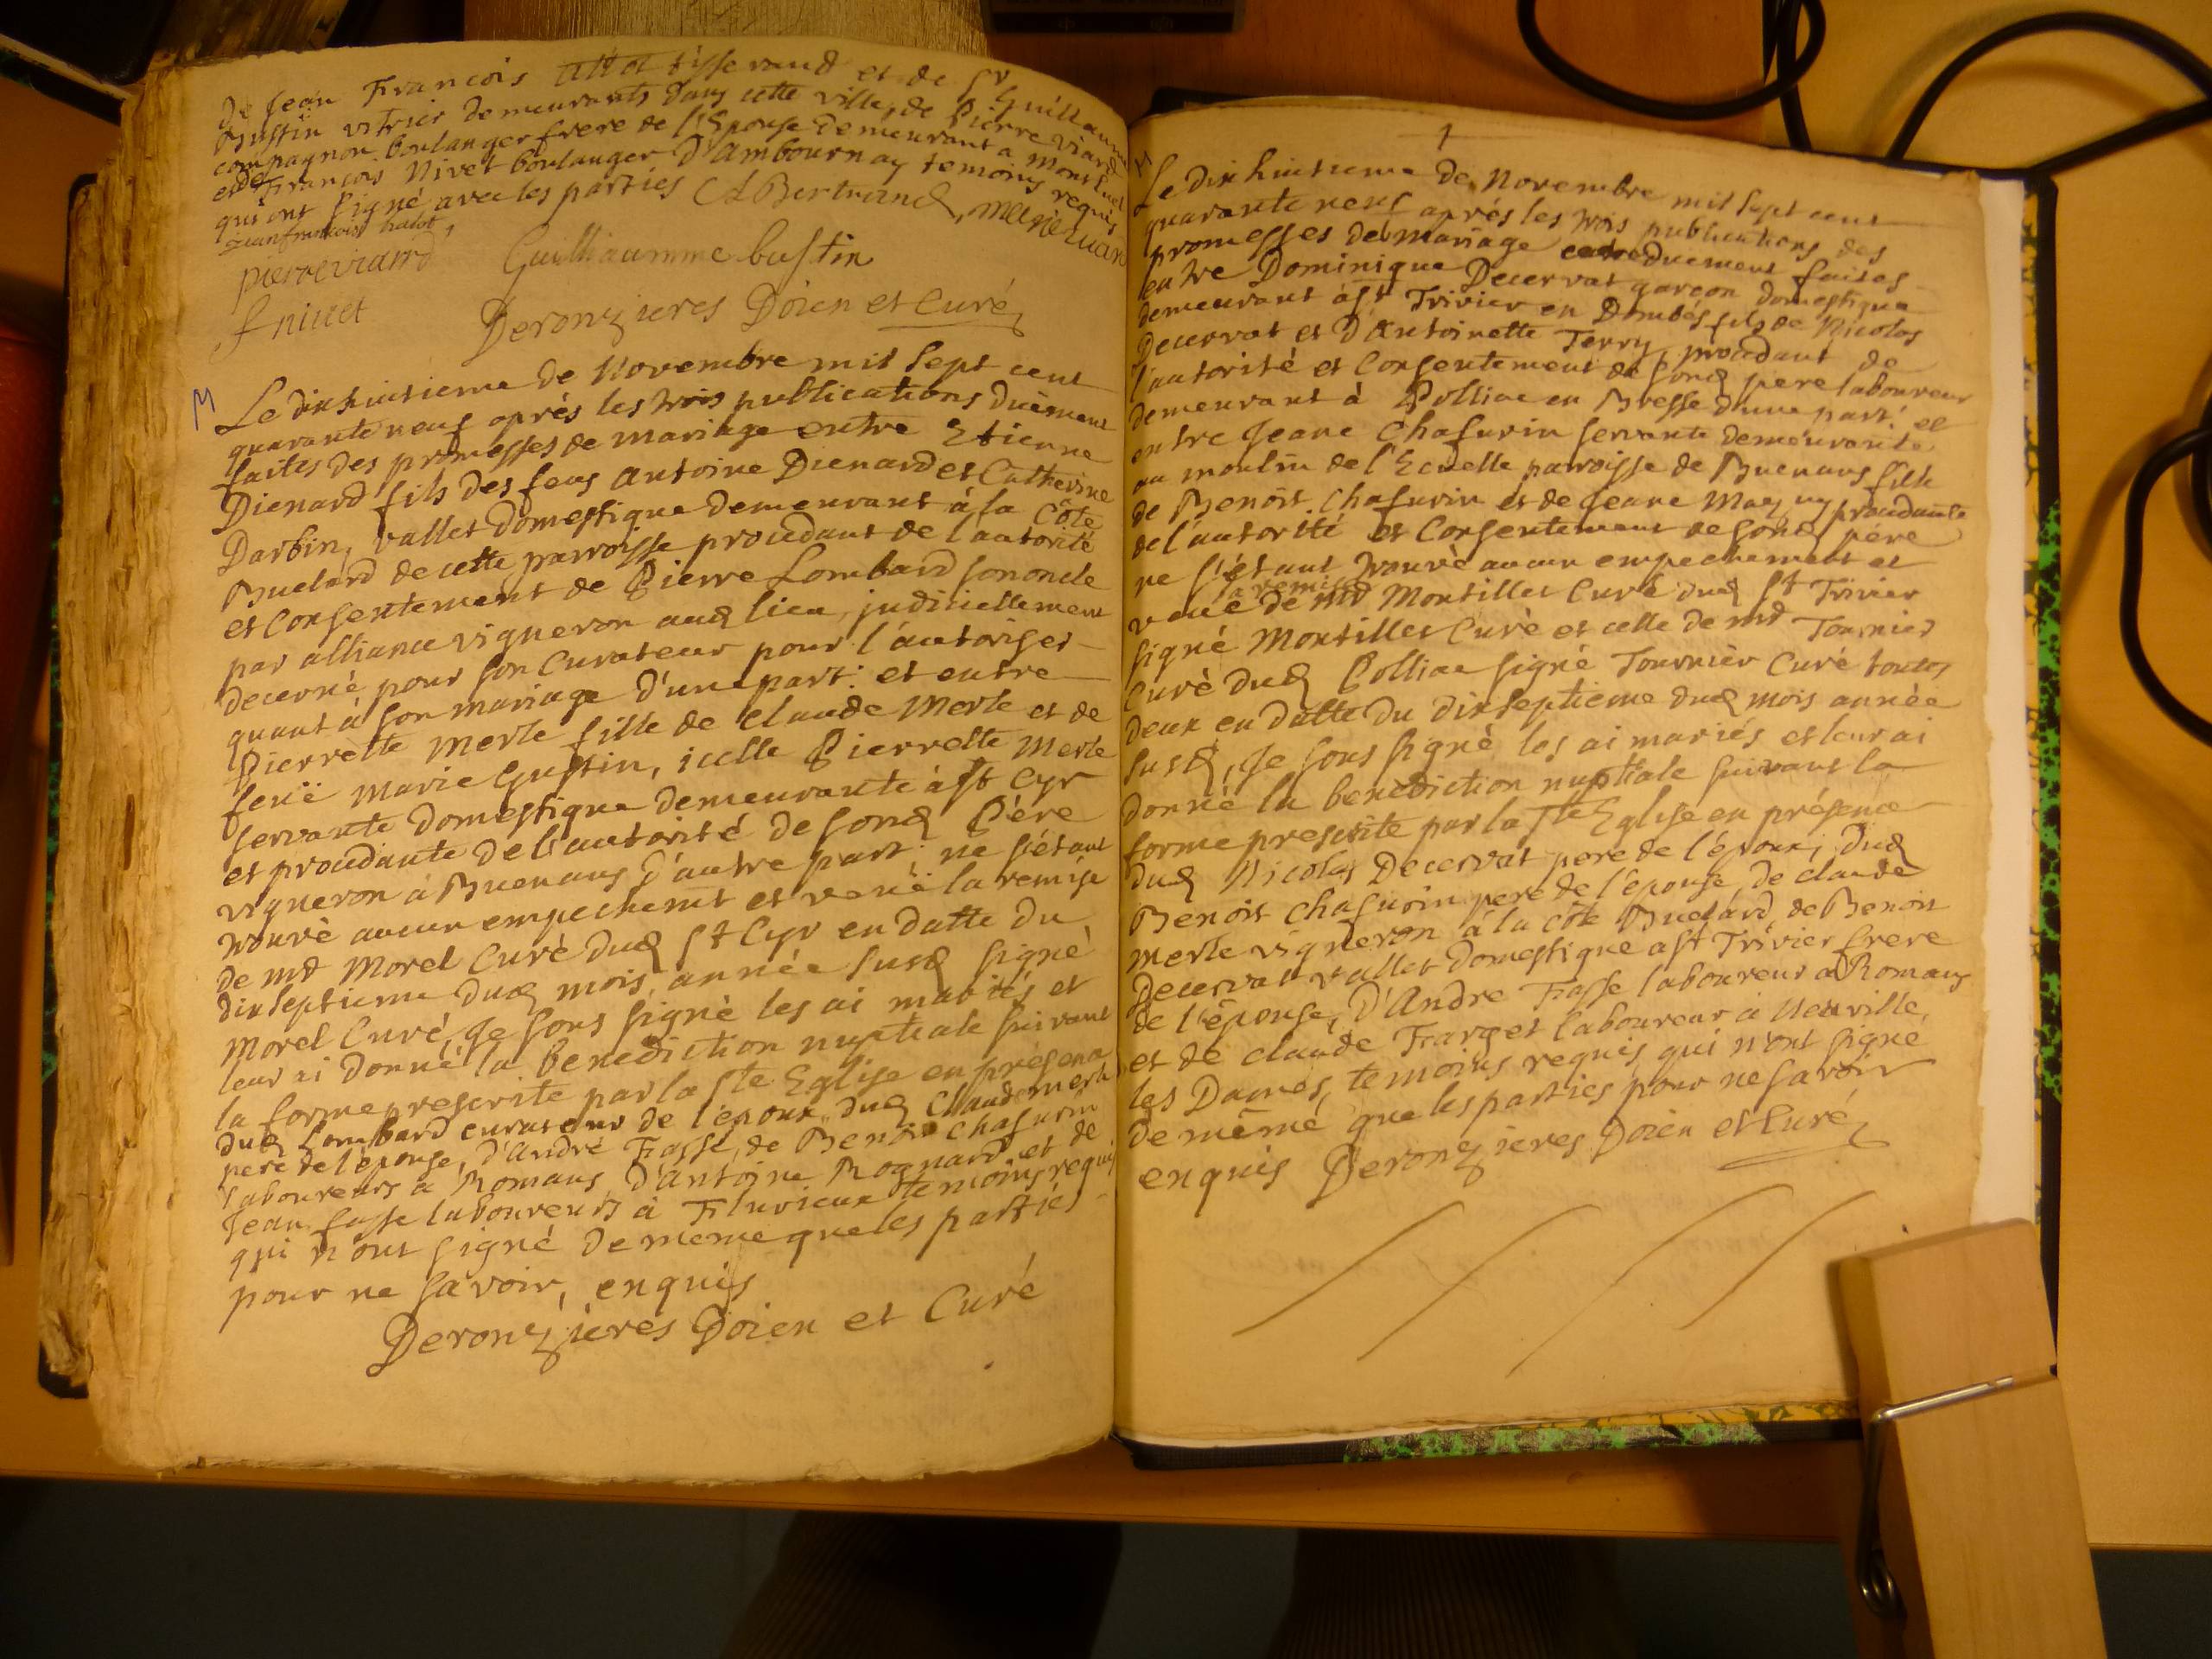 de Jean François tisserand et de Sr Guillaume
Bustin vitrier demeurants dans cette ville, de Pierre Viard
compagnon boulanger frere de l'Epouse demeurant a Montluel
et de François Nivet boulanger d'Ambournay temoins requis
qui ont signé avec les parties C A Bertrand, marie viard
jeanfrancois halot,
pierreviarrd Guilliaumme bustin
f nivet Deronzieres Doien et Curé
M
Le dixhuitieme de Novembre mil sept cent
quarante neuf après les trois publications duëment
faites des promesses de mariage entre Etienne
Dienard fils des feus Antoine Dienard et Catherine
Darbin, vallet domestique demeurant à la Côte
Buelard de cette parroisse procedant de l'autorité
et Consentement de Pierre Lombard son oncle
par alliance vigneron aud lieu, judiciellement
decerné pour son Curateur pour l'autoriser
quant à son mariage d'une part: et entre
Pierrette Merle fille de Claude Merle et de
feuë Marie Gustin, icelle Pierrette Merle
servante domestique demeurante à St Cyr
et procedante de l'autorité de sond Père
vigneron à Buenans d'autre part; ne s'étant
trouvé aucun empechemt et veuë la remise
de mr Morel Curé dud St Cyr en datte du
dixseptieme dud mois, année susd signé
Morel Curé, Je sous signé les ai mariés et
leur ai donné la benediction nuptiale suivant
la forme prescrite par la Ste Eglise en présence
dud Lombard curateur de l'époux, dud Claude merle
pere de l'épouse, d'André Fasse, de Benoit Chafurin
laboureurs a Romans, d'Antoine Rognard et de
Jean fasse laboureurs à Flurieux temoins requis
qui n'ont signé de meme que les parties
pour ne savoir, enquis
Deronzieres Doien et Curé
M
Le dixhuitieme de Novembre mil sept cent
quarante neuf après les trois publications des
promesses de mariage duement faites
entre Dominique Decervat garçon domestique
demeurant à St Trivier en Dombes fils de Nicolas
Decervat et d'Antoinette Terry, procedant de
l'autorité et Consentement de sond pere laboureur
demeurant à Polliac en Bresse d'une part: et
entre Jeane Chafurin servante demeurante
au moulin de l'Ecuelle parroisse de Buenans fille
de Benoit Chafurin et de Jeane procedante
de l'autorité et Consentement de sond père
ne s'étant trouvé aucun empechement et
la remise
veuë de mr Montillet Curé dud St Trivier
signé Montillet Curé et celle de mr Tournier
Curé dud Polliac signé Tournier Curé toutes
deux en datte du dixseptieme dud mois année
susd, Je sous signé les ai mariés et leur ai
donné la benediction nuptiale suivant la
forme prescrite par la Ste Eglise en présence
dud Nicolas Decervat pere de l'époux, dud
Benoit Chafurin pere de l'épouse, de claude
merle vigneron à la côte Buelard, de Benoit
Decervat vallet domestique a St Trivier frere
de l'épouse, d'André Fasse laboureur a Romans
et de claude Farget laboureur à Neuville
les Dames, temoins requis, qui n'ont signé
de même que les parties pour ne savoir
enquis Deronzieres Doien et Curé